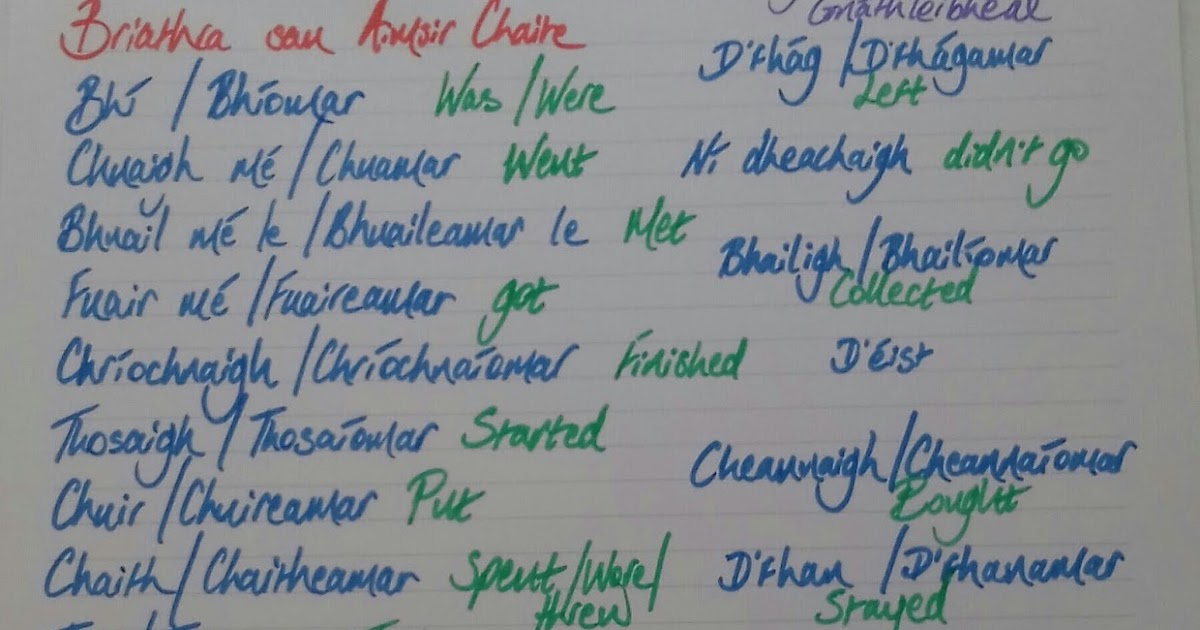 Briathra san Aimsir Chaite
Bhí / Bhíomar Was/Were
Chuaigh mé / Chuamar Went
Bhuail mé le / Bhuaileamar le Met
Fuair mé / Fuaireamar got
Chríochnaigh / Chríochnaíomar Finished
Thosaigh / Thosaíomar Started
Chuir / Chuireamar Put
Chaith / Chaitheamar Spent/Wore/
threw
Gnáthleibhéal
D'fhág / D'fhágamar
Left
Ní dheachaigh didn't go
Bhailigh / Bhailíomar
Collected
D'éist
Cheannaigh / Cheannaíomar
Bought
D'fhan / D'fhanamar
Stayed